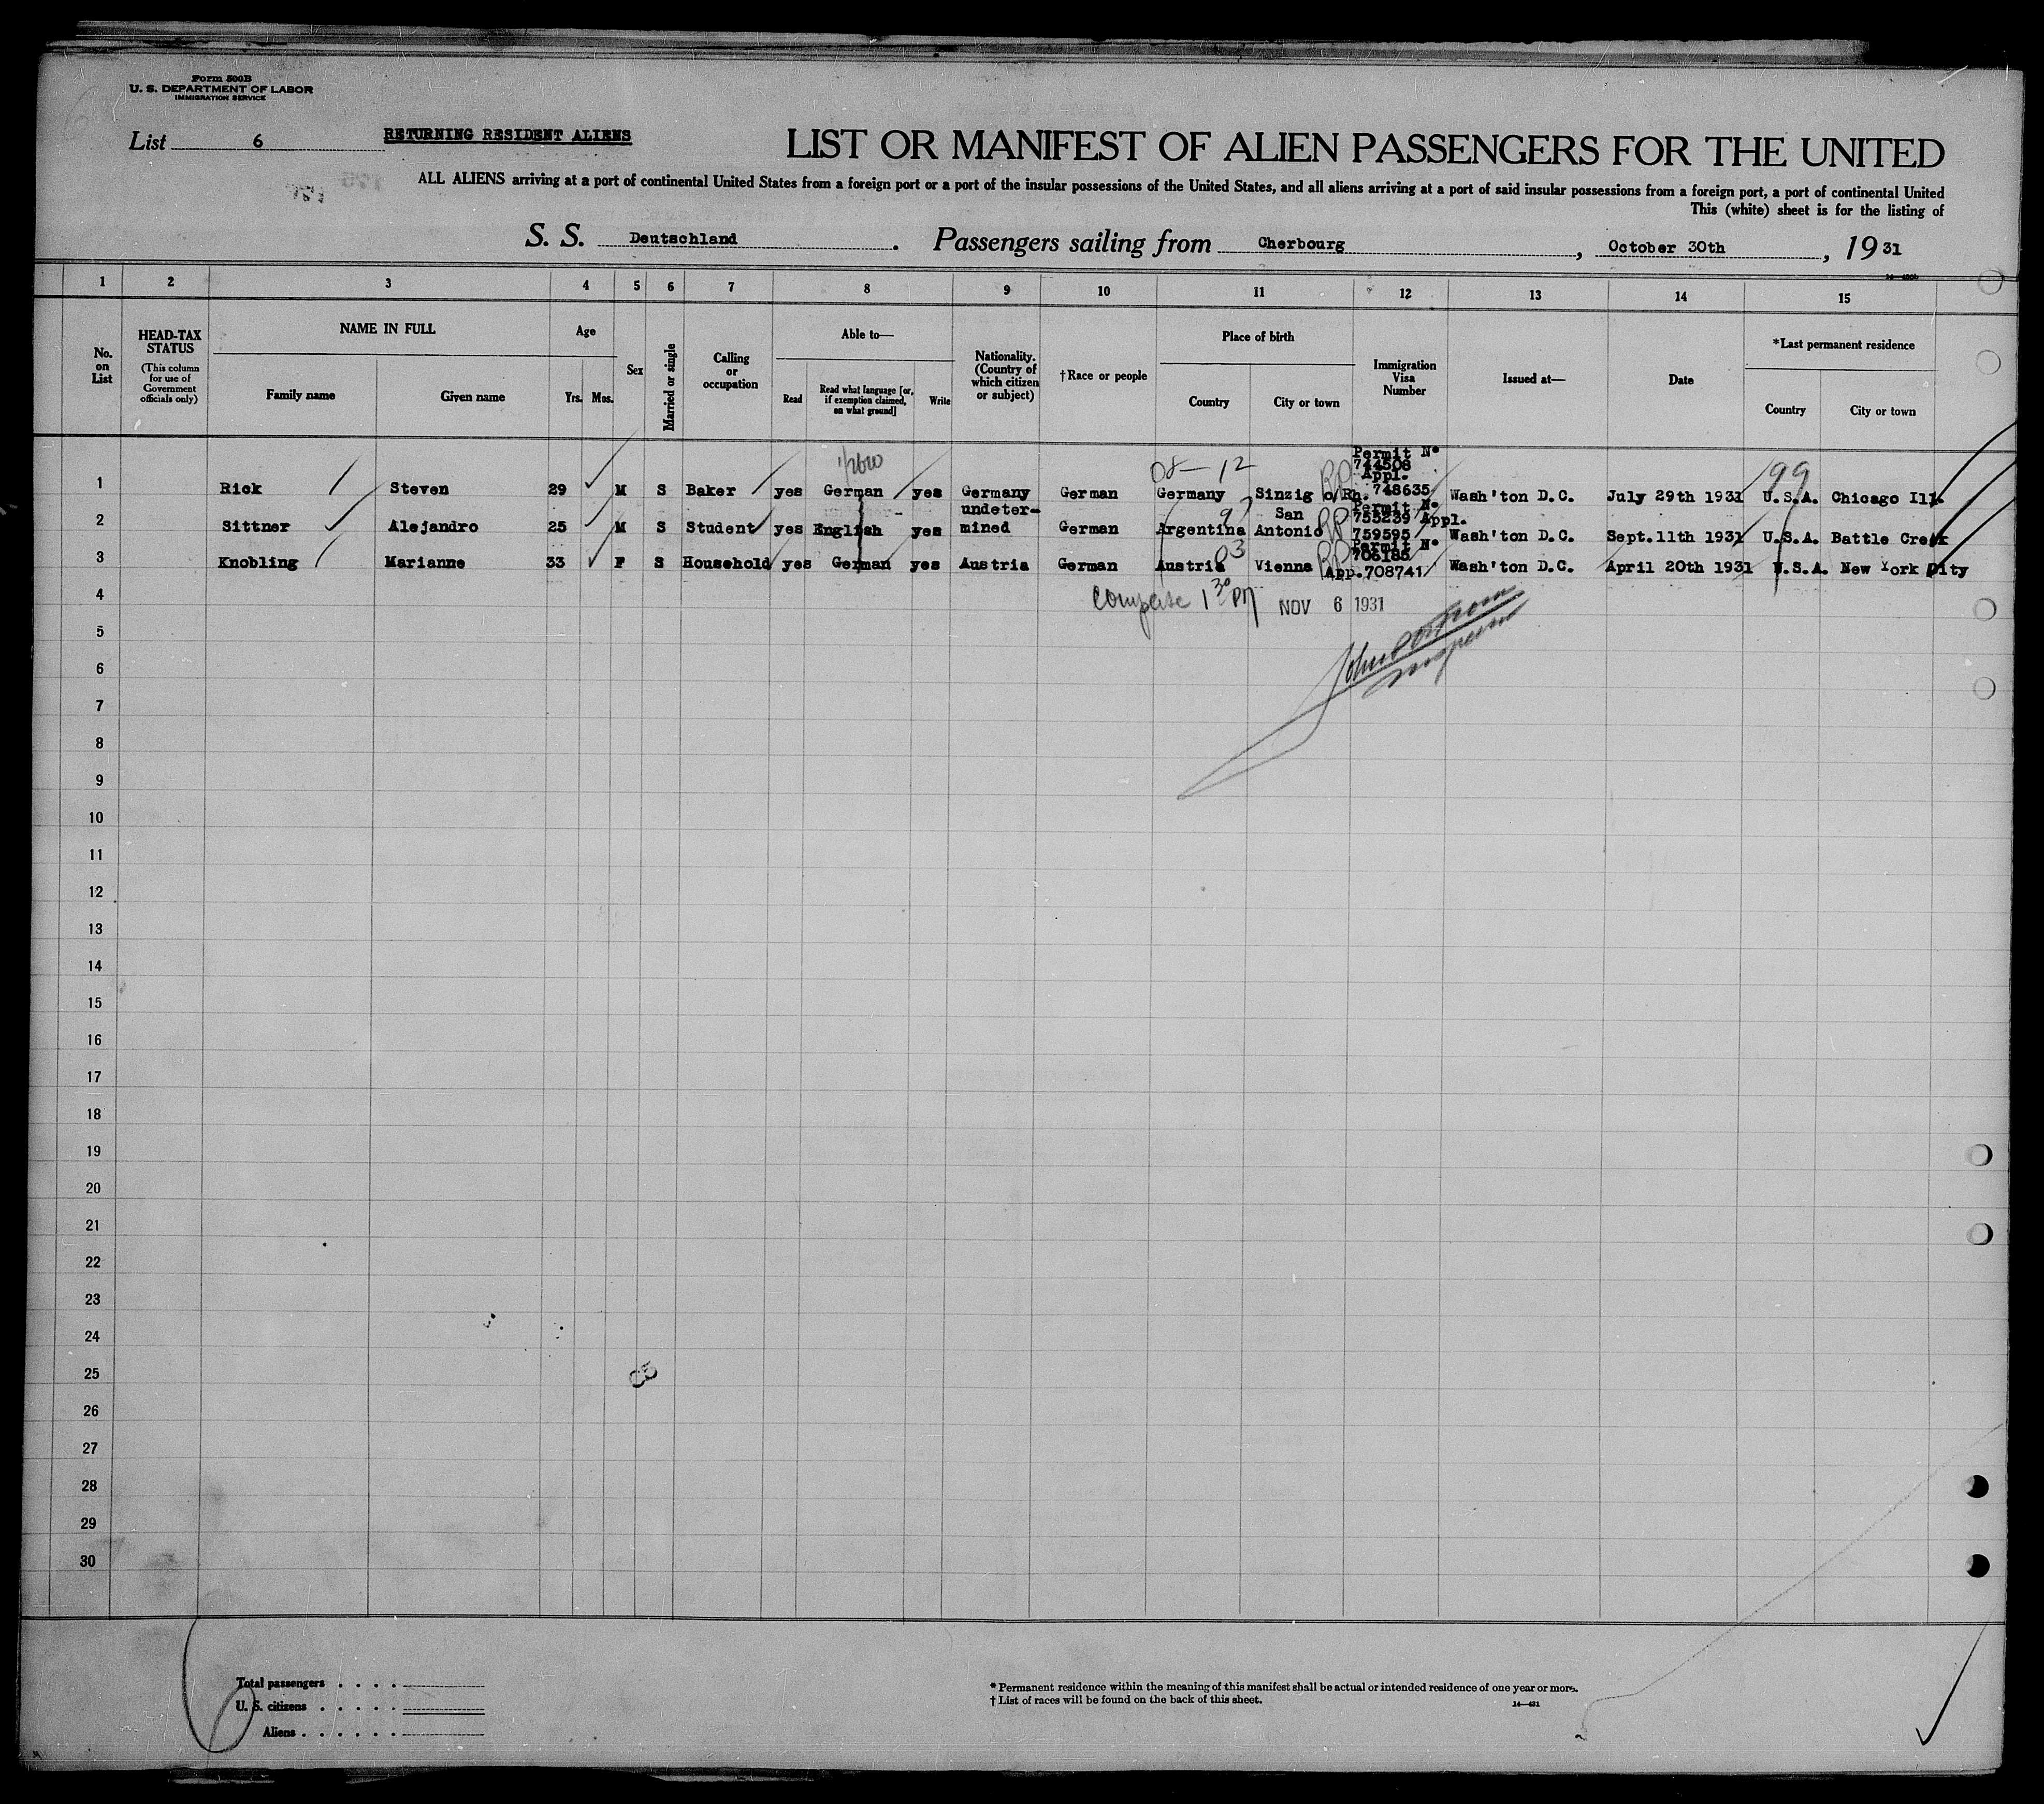 Form 500B
U. S. DEPARTMENT OF LABOR
IMMIGRATION SERVICE
List 6
RETURNING RESIDENT ALIENS
LIST OR MANIFEST OF ALIEN PASSENGERS FOR THE UNITED
ALL ALIENS arriving at a port of continental United States from a foreign port or a port of the insular possessions of the United States, and all aliens arriving at a port of said insular possessions from a foreign port, a port of continental United
This (white) sheet is for the listing of
S. S. Deutschland . Passengers sailing from Cherbourg , October 30th , 19 31
1 2 3 4 5 6 7 8 9 10 11 12 13 14 15
No. on List
HEAD-TAX STATUS
(This column for use of Government officials only)
NAME IN FULL
Family name Given name
Age
Yrs. Mos.
Sex
Married or single
Calling or occupation
Able to—
Read Read what language [or, if exemption claimed, on what ground] Write
Nationality. (Country of which citizen or subject)
†Race or people
Place of birth
Country City or town
Immigration Visa Number
Issued at—
Date
*Last permanent residence
Country City or town
08-12 Permit Nº 744508 Appl. 99
1 Rick Steven 29 M S Baker yes German yes Germany German Germany Sinzig o/Rh. RP 748635 Wash'ton D.C. July 29th 1931 U.S.A. Chicago Ill.
undeter- San Permit Nº 755239 Appl.
2 Sittner Alejandro 25 M S Student yes English yes mined German Argentina Antonio RP 759595 Wash'ton D.C. Sept.11th 1931 U.S.A. Battle Creek
03 Permit Nº 706185
3 Knobling Marianne 33 F S Household yes German yes Austria German Austria Vienna RP App.708741 Wash'ton D.C. April 20th 1931 U.S.A. New York City
4 Complete 1 30 PM NOV 6 1931
5
6
7
8
9
10
11
12
13
14
15
16
17
18
19
20
21
22
23
24
25
26
27
28
29
30
Total passengers . . . .
U. S. citizens . . . . .
Aliens . . . . . .
* Permanent residence within the meaning of this manifest shall be actual or intended residence of one year or more.
† List of races will be found on the back of this sheet.